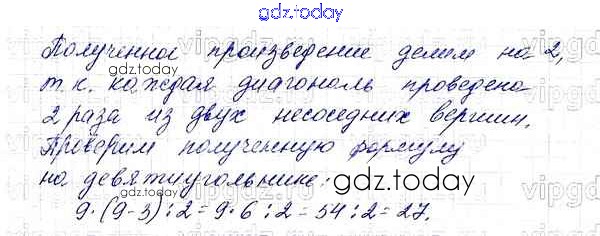 gdz.today
Полученное произведение делим на 2,
gdz.today
т.к. каждая диагональ проведена
2 раза из двух несоседних вершин.
Проверим полученную формулу
на девятиугольнике:
gdz.today
9·(9-3):2=9·6:2=54:2=27.